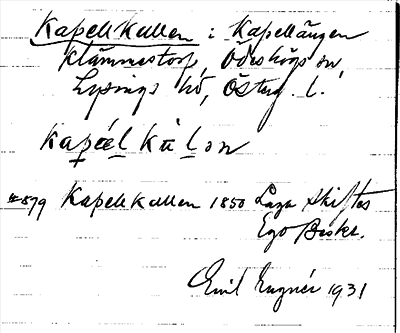 Kapellkullen i Kapellängen
Klämmestorp, Ödeshögs sn,
Lysings hd, Österg. l.
kapél kù lon
#879 Kapellkullen 1850 Laga Skiftes
Ego Beskr.
Emil Engnér 1931